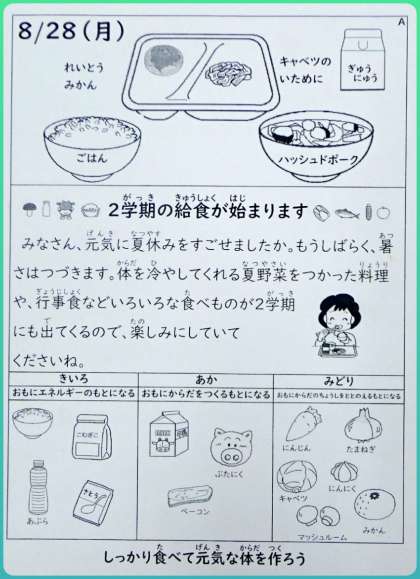 8/28(月)
A
れいとう
みかん
キャベツの
いために
ぎゅう
にゅう
ごはん
ハッシュドポーク
2学期の給食が始まります
みなさん、元気に夏休みをすごせましたか。もうしばらく、暑
さはつづきます。体を冷やしてくれる夏野菜をつかった料理
や、行事食などいろいろな食べものが2学期
にも出てくるので、楽しみにしていて
くださいね。
きいろ
あか
みどり
おもにエネルギーのもとになる
おもにからだをつくるもとになる
おもにからだのちょうしをととのえるもとになる
こむぎこ
あぶら
さとう
ぶたにく
ベーコン
にんじん
たまねぎ
キャベツ
にんにく
マッシュルーム
みかん
しっかり食べて元気な体を作ろう